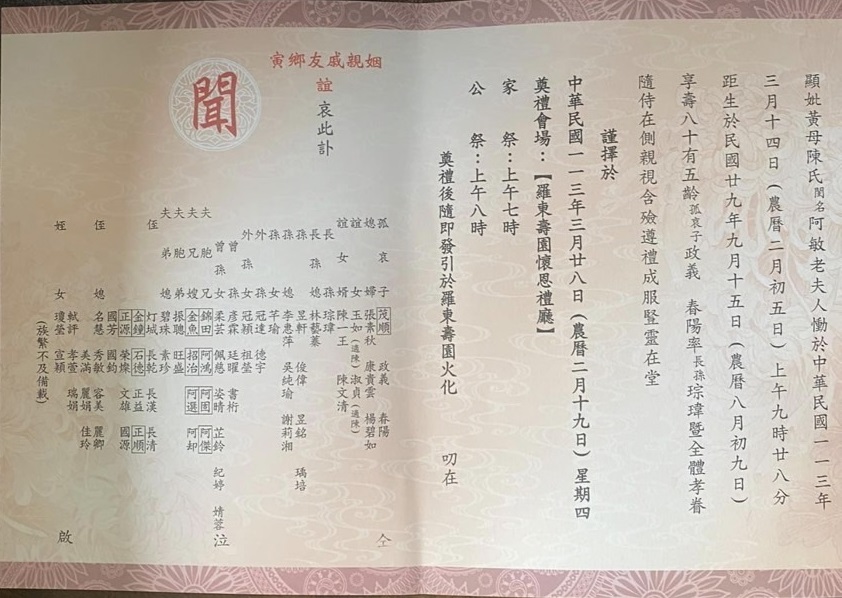 顯妣黃母陳氏閨名阿敏老夫人慟於中華民國一一三年
三月十四日（農曆二月初五日）上午九時廿八分
距生於民國廿九年九月十五日（農曆八月初九日）
享壽八十有五齡孤哀子政義 春陽率長孫琮瑋暨全體孝眷
隨侍在側親視含殮遵禮成服豎靈在堂
謹擇於
中華民國一一三年三月廿八日（農曆二月十九日）星期四
奠禮會場：【羅東壽園懷恩禮廳】
家 祭：上午七時
公 祭：上午八時
奠禮後隨即發引於羅東壽園火化 叨在
姻親戚友鄉寅
誼 哀此訃
聞
孤哀子 茂順 政義 春陽 仝
媳婦 張素秋 康貴雲 楊碧如
誼女 玉如（適陳） 淑貞（適陳）
誼女婿 陳一王 陳文清
長孫 琮瑋
長孫媳 林藝蓁
孫 昱軒 俊偉 昱銘 瑀培
孫媳 李惠萍 吳純瑜 謝莉湘
孫女 芊瑜
外孫 冠達 德宇
外孫女 冠穎 祖瑩
曾孫 彥霖 廷曜 書桁
曾孫女 柔芸 佩慈 姿晴 芷鈴 紀婷 婧蓉 泣
夫胞兄 錦田 阿鴻 阿圳 阿傑
夫兄嫂 金魚 招治 阿選 阿却
夫胞弟 振聰 旺盛
夫弟媳 碧珠 素珍
侄 灯城 長乾 長漢 長清
金鐘 石德 正益 正順
正源 榮燦 文雄 國源
國芳 國鈞
侄媳 名慧 秀敏 容美 麗卿
美滿 麗娟 佳玲
姪女 軾評 孝萱 瑞娟
瓊瑩 宣穎 啟
（族繁不及備載）